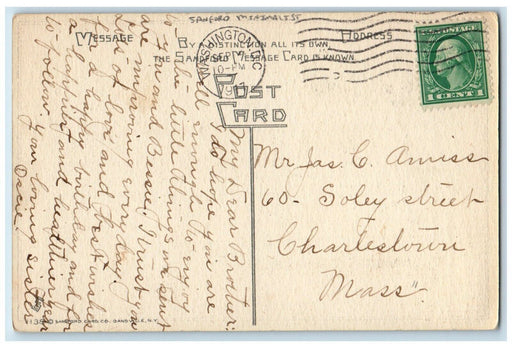 SANFORD
MESSAGE
ADDRESS
BY A DISTINCTION ALL ITS OWN
THE SANDFORD MESSAGE CARD IS KNOWN
POST
CARD
WASHINGTON, D.C.
U.S. POSTAGE
1 CENT 1
My Dear Brother:
I do hope you are
well enough to enjoy
the little things we sent
to you and Bessie. Trust you
are improving every day.
Lots of love and best wishes
for a happy birthday and for
a happier and healthier year
to follow.
Your loving sister
Mr. Jas. C. Amiss
60- Soley street
Charlestown
Mass"
SANDFORD CARD CO. DANSVILLE, N.Y.